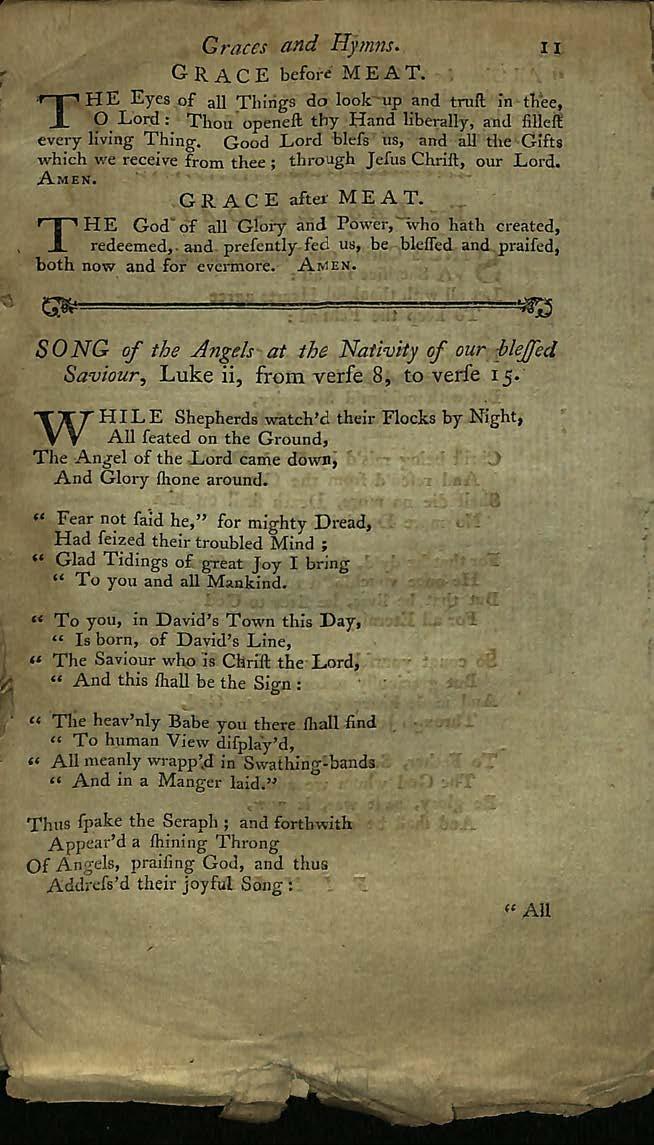 Graces and Hymns. 11
GRACE before MEAT.
THE Eyes of all Things do look up and truſt in thee,
O Lord: Thou openeſt thy Hand liberally, and filleſt
every living Thing. Good Lord bleſs us, and all the Gifts
which we receive from thee; through Jeſus Chriſt, our Lord.
AMEN.
GRACE after MEAT.
THE God of all Glory and Power, who hath created,
redeemed, and preſently fed us, be bleſſed and praiſed,
both now and for evermore. AMEN.
SONG of the Angels at the Nativity of our bleſſed
Saviour, Luke ii, from verſe 8, to verſe 15.
WHILE Shepherds watch'd their Flocks by Night,
All ſeated on the Ground,
The Angel of the Lord came down,
And Glory ſhone around.
“ Fear not ſaid he,” for mighty Dread,
Had ſeized their troubled Mind ;
“ Glad Tidings of great Joy I bring
“ To you and all Mankind.
“ To you, in David's Town this Day,
“ Is born, of David's Line,
“ The Saviour who is Chriſt the Lord,
“ And this ſhall be the Sign :
“ The heav'nly Babe you there ſhall find
“ To human View diſplay'd,
“ All meanly wrapp'd in Swathing-bands
“ And in a Manger laid.”
Thus ſpake the Seraph ; and forthwith
Appear'd a ſhining Throng
Of Angels, praiſing God, and thus
Addreſs'd their joyful Song :
“ All